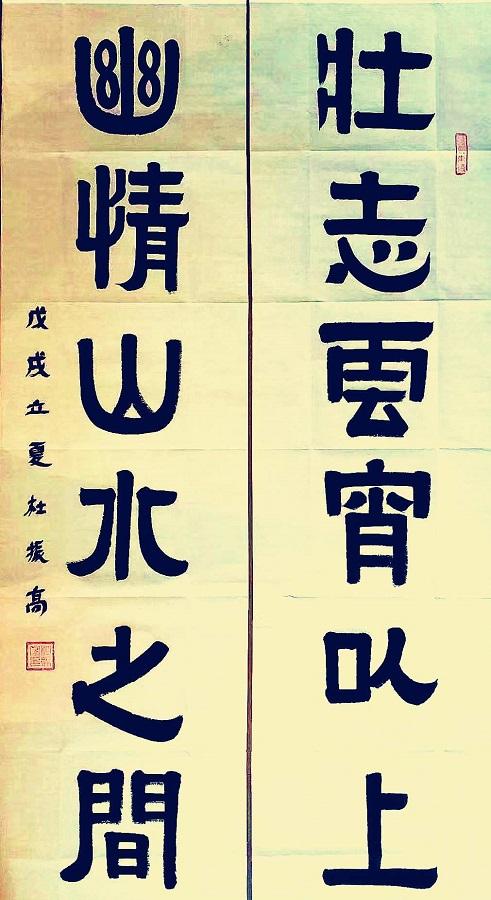 壮志雲宵以上
幽情山水之間
戊戌立夏杜振高